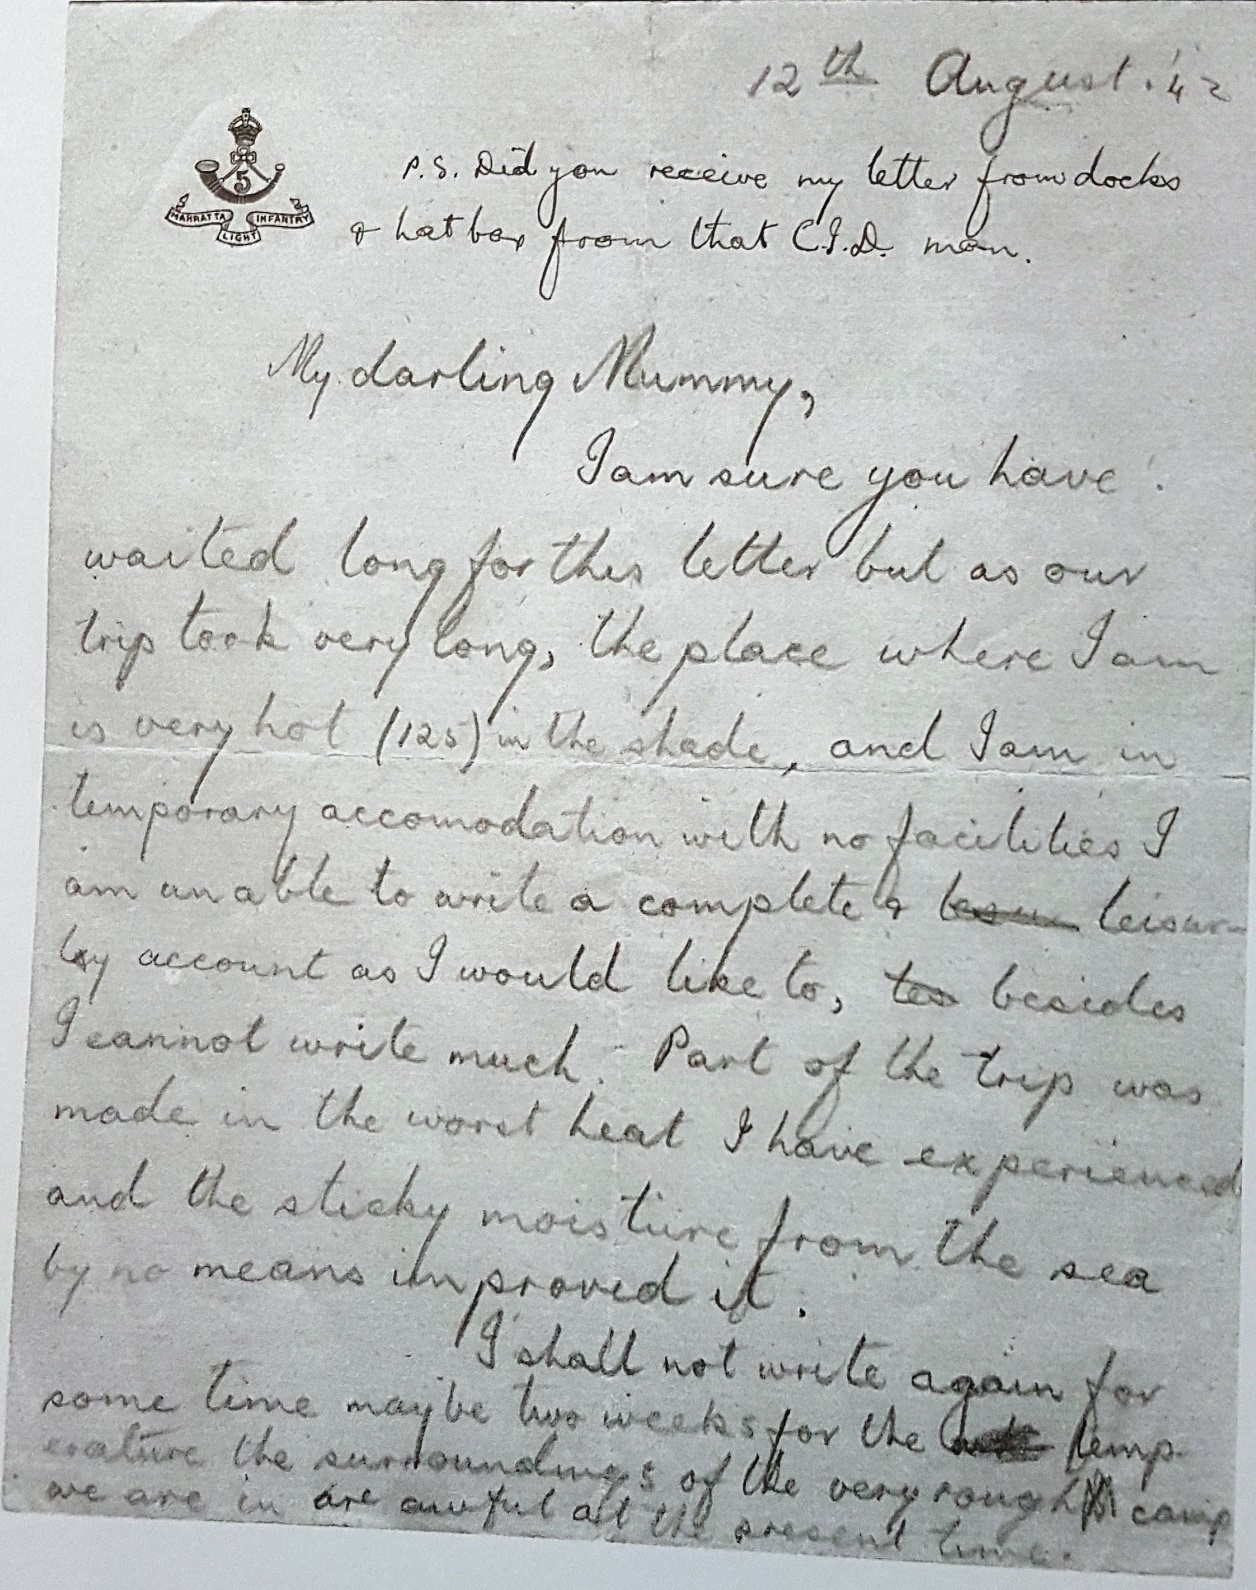 12th August. '42
5
MAHRATTA LIGHT INFANTRY
P.S. Did you receive my letter from docks
& hat box from that C.I.D. man.
My darling Mummy,
I am sure you have
waited long for this letter but as our
trip took very long, the place where I am
is very hot (125) in the shade, and I am in
temporary accomodation with no facilities I
am unable to write a complete & leisur-
ly account as I would like to, besides
I cannot write much. Part of the trip was
made in the worst heat I have experienced
and the sticky moisture from the sea
by no means improved it.
I shall not write again for
some time maybe two weeks for the temp-
erature the surroundings of the very rough camp
we are in are awful at the present time.